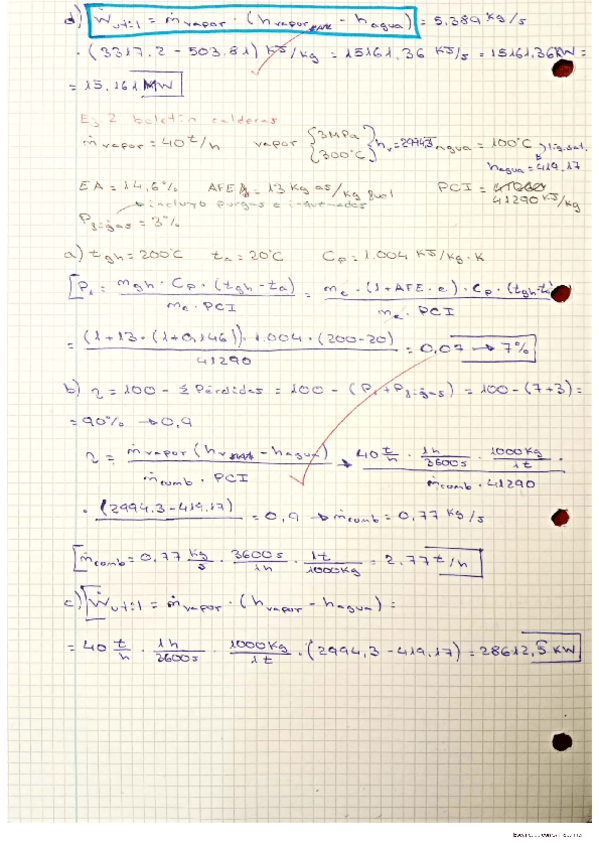 d) Ẇútil = ṁvapor · (hvapor - hagua) = 5.389 kg/s
· (3317.2 - 503.81) KJ/kg = 15161.36 KJ/s = 15161.36KW =
= 15.161 MW
Ej 2 boletín calderas
ṁvapor = 40 t/h vapor { 3MPa 300°C } hv = 2994.3 Tagua = 100°C liq. sat.
hagua = 419.17
EA = 14,6% AFE = 13 kg as/kg fuel PCI = 41290 KJ/kg
incluye purgas e inquemados
P3:gas = 3%
a) tgh = 200°C ta = 20°C Cp = 1.004 KJ/kg·K
P1 = mgh · Cp · (tgh - ta) / mc · PCI = mc · (1 + AFE · e) · Cp · (tgh - ta) / mc · PCI
= (1 + 13 · (1 + 0,146)) · 1.004 · (200 - 20) / 41290 = 0,07 → 7%
b) η = 100 - Σ Pérdidas = 100 - (P1 + P3:gas) = 100 - (7+3) =
= 90% → 0,9
η = ṁvapor (hv - hagua) / ṁcomb · PCI → 40 t/h · 1h/3600s · 1000kg/1t ·
ṁcomb · 41290
· (2994.3 - 419,17) = 0,9 → ṁcomb = 0,77 kg/s
ṁcomb = 0,77 kg/s · 3600s/1h · 1t/1000kg = 2.77 t/h
c) Ẇútil = ṁvapor · (hvapor - hagua) =
= 40 t/h · 1h/3600s · 1000kg/1t · (2994,3 - 419,17) = 28612,5 KW